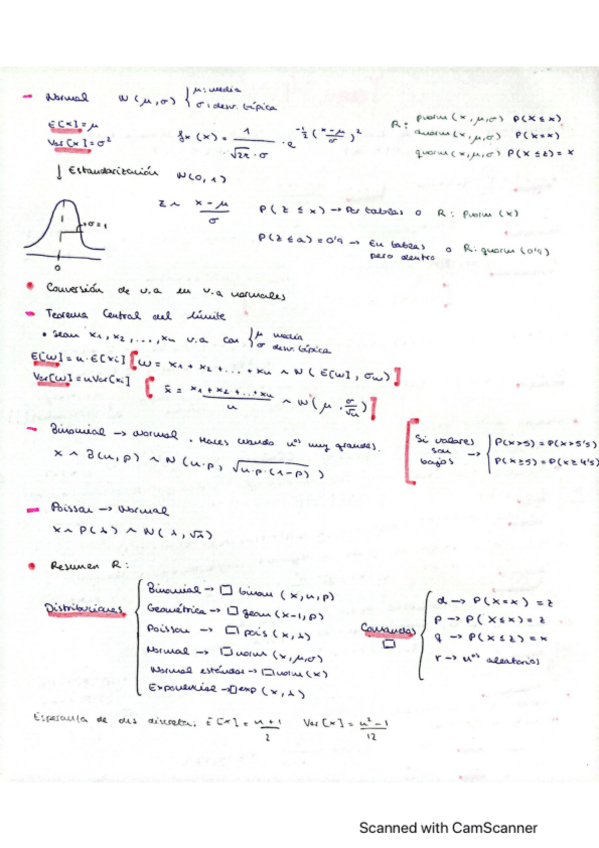 - Normal N(μ,σ) { μ: media
σ: desv. típica
E[x]=μ
Var[x]=σ²
fx(x) = 1/(√2π · σ) · e^(-½((x-μ)/σ)²)
R: pnorm(x,μ,σ) P(X≤x)
dnorm(x,μ,σ) P(X=x)
qnorm(x,μ,σ) P(X≤z)=x
↓ Estandarización N(0,1)
z ~ (x-μ)/σ
P(z≤x) → Por tablas o R: pnorm(x)
P(z≤a)=0'9 → En tablas pero dentro o R: qnorm(0'9)
σ=1
0
• Conversión de v.a en v.a normales
- Teorema Central del límite
• Sean x1, x2, ..., xn v.a con { μ media
σ desv. típica
E[w]=n·E[xi] [w = x1+x2+...+xn ~ N(E[w], σw)]
Var[w]=nVar[xi] [x̄ = (x1+x2+...+xn)/n ~ N(μ, σ/√n)]
- Binomial → Normal. Haces cuando nos muy grandes.
x ~ B(n,p) ~ N(n·p, √n·p·(1-p))
[Si valores son bajos → { P(x>5)=P(x>5'5)
P(x≥5)=P(x≥4'5)
- Poisson → Normal
x ~ P(λ) ~ N(λ,√λ)
• Resumen R:
Distribuciones
Binomial → □ binom(x,n,p)
Geométrica → □ geom(x-1,p)
Poisson → □ pois(x,λ)
Normal → □ norm(x,μ,σ)
Normal estándar → □ norm(x)
Exponencial → □ exp(x,λ)
Comandos
□
d → P(X=x)=z
p → P(X≤x)=z
q → P(X≤z)=x
r → nos aleatorios
Esperanza de dis discreta: E[x]=(n+1)/2 Var[x]=(n²-1)/12
Scanned with CamScanner